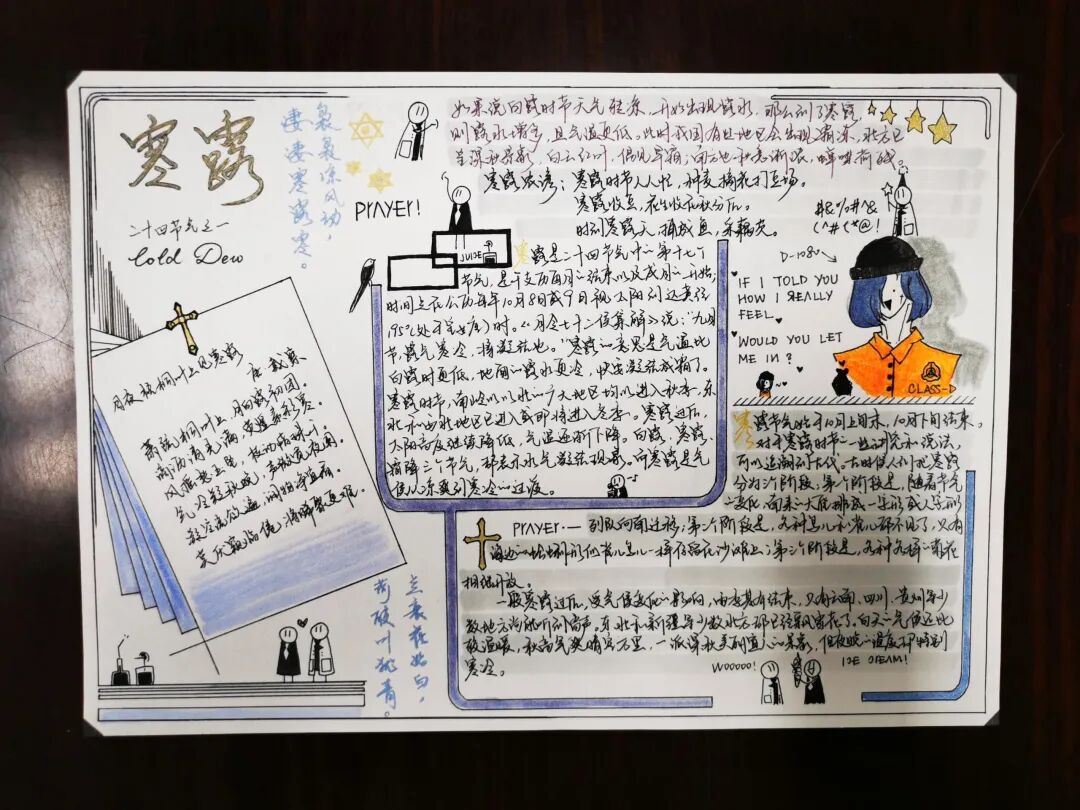 寒露
二十四节气之一
Cold Dew
袅袅凉风动，
凄凄寒露零。
PRAYER!
如果说白露时节天气转凉，开始出现露水，那么到了寒露，
则露水增多，且气温更低。此时我国有些地区会出现霜冻，北方已
呈深秋景象，白云红叶，偶见早霜，南方也秋意渐浓，蝉噤荷残。
寒露农谚：寒露时节人人忙，种麦摘花打豆场。
寒露收豆，花生收在秋分后。
时到寒露天，捕成鱼，采藕芡。
#&%#^&
(^#(*@!
JUICE
寒露是二十四节气中的第十七个
节气，是干支历酉月的结束以及戌月的开始；
时间点在公历每年10月8日或9日视太阳到达黄经
195°时。《月令七十二候集解》说：“九月
节，露气寒冷，将凝结也。”寒露的意思是气温比
白露时更低，地面的露水更冷，快要凝结成霜了。
寒露时节，南岭及以北的广大地区均已进入秋季，东
北和西北地区已进入或即将进入冬季。寒露过后，
太阳高度继续降低，气温逐渐下降。白露、寒露、
霜降三个节气，都表示水气凝结现象，而寒露是气
候从凉爽到寒冷的过渡。
D-1080
IF I TOLD YOU
HOW I REALLY
FEEL
WOULD YOU LET
ME IN?
CLASS-D
月夜梧桐叶上见寒露
唐 戴察
萧疏桐叶上，月白露初团。
滴沥清光满，荧煌素彩寒。
风摇愁玉坠，枝动惜珠干。
气冷疑秋晚，声微觉夜阑。
凝空流欲遍，润物净宜看。
莫厌窥临倦，将晞聚更难。
寒露节气始于10月上旬末，10月下旬结束。
对于寒露时节的
可以追溯到古代。古时候人们把寒露
分为三个阶段，第一个阶段是，随着节气
变化，南来的大雁排成一字形或人字形的
PRAYER.—列队向南迁移；第二个阶段是，各种鸟儿都不见了，只有
海边的蛤蜊们像鸟儿一样存留在沙滩上；第三个阶段是，各种各样的菊花
相继开放。
一般寒露过后，受气候变化的影响，雨季基本结束，只有云南、四川、贵州等少
数地方尚能听到雷声。东北和新疆等少数北方都已经飘雪花了。白天的气候还比
较温暖，秋高气爽晴空万里，一派深秋美丽宜人的景象，但夜晚的温度却特别
寒冷。
WOOOOO!
ICE CREAM!
点衰荷花始白，
荷破叶犹青。